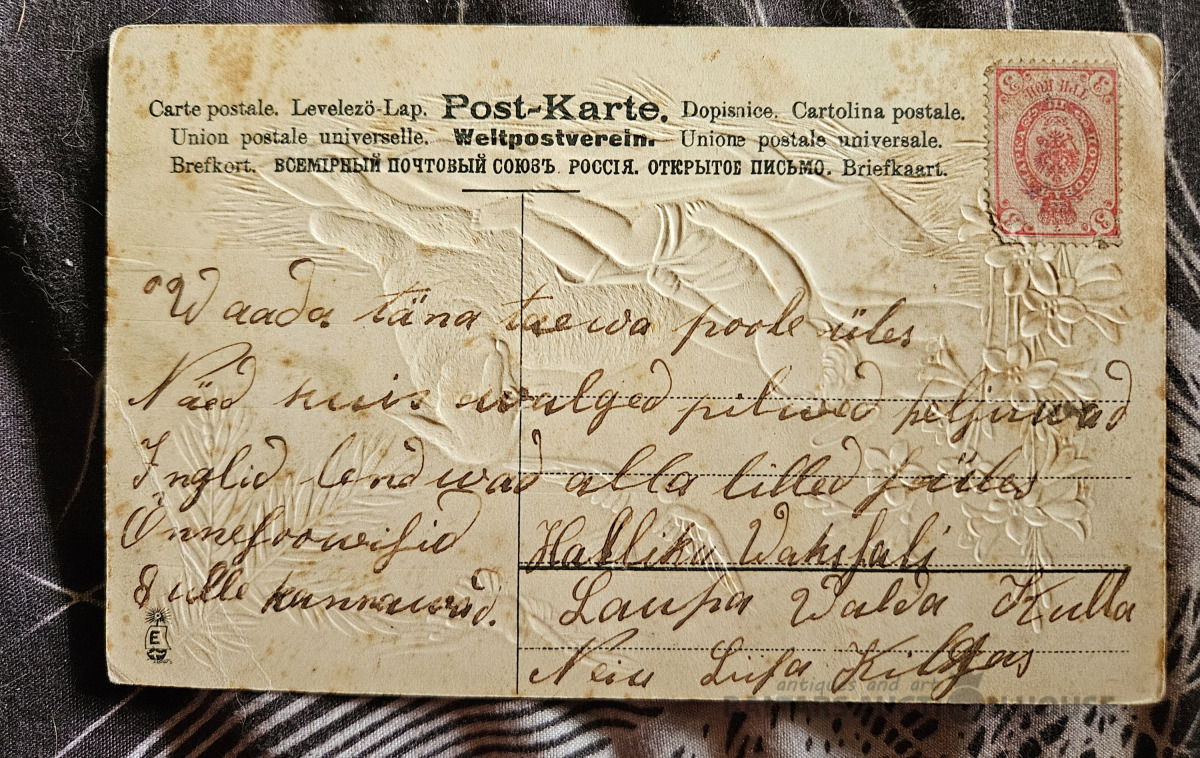 Carte postale. Levelezö-Lap. Post-Karte. Dopisnice. Cartolina postale.
Union postale universelle. Weltpostverein. Unione postale universale.
Brefkort. ВСЕМІРНЫЙ ПОЧТОВЫЙ СОЮЗЪ. РОССІЯ. ОТКРЫТОЕ ПИСЬМО. Briefkaart.
Waada täna taewa poole üles
Näed kuis walged pilwed heljuwad
Inglid lendwad alla lilled süles
Õnnesoowisid
Sulle kannawad.
Halliku Waksali
Laupa Walda Kulla
Neiu Liisa Kilgas
E
antiques and art